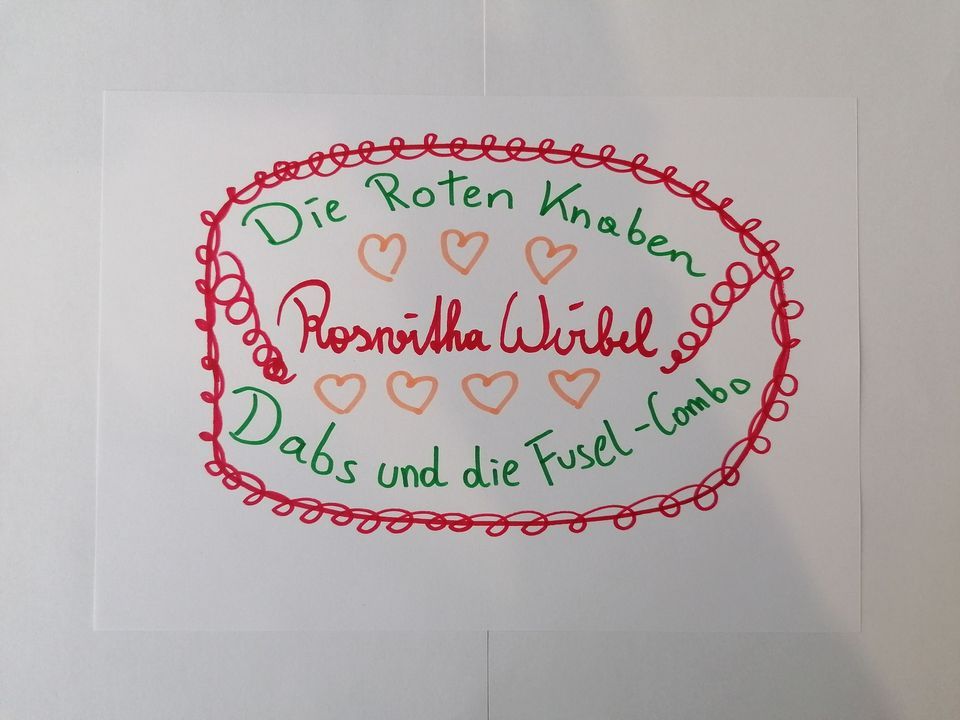 Die Roten Knaben
Roswitha Wirbel
Dabs und die Fusel-Combo